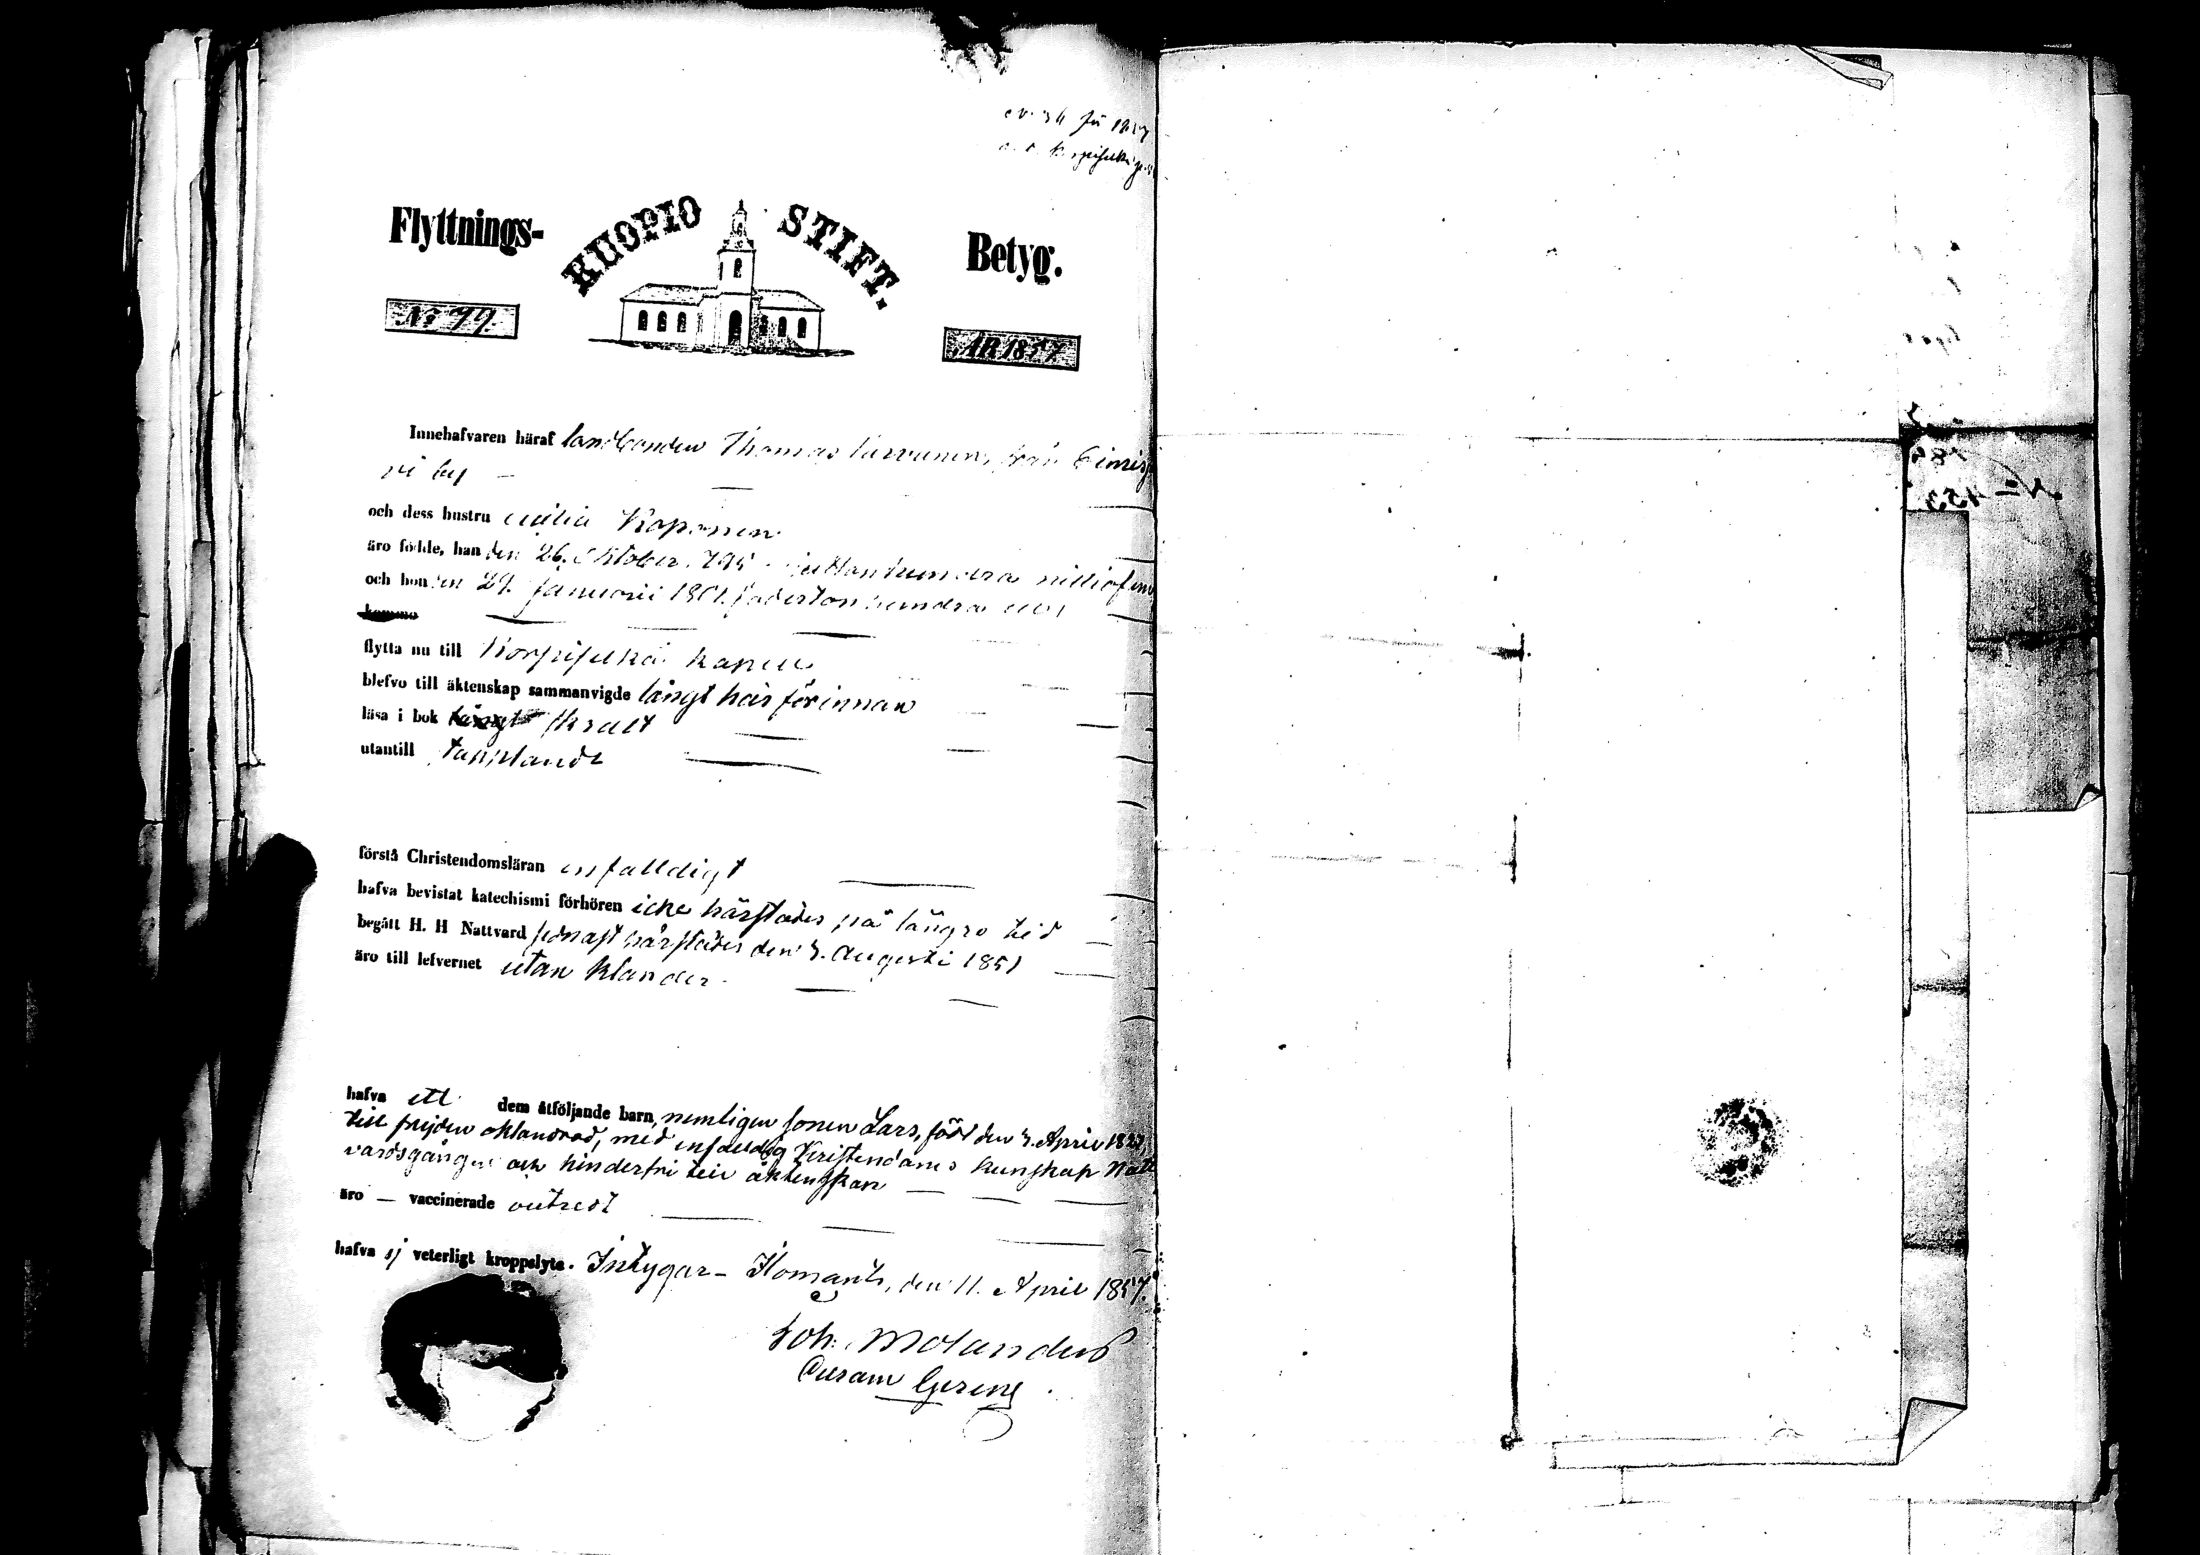 Flyttnings- KUOPIO STIFT. Betyg.
No 79. ÅR 1857
Innehafvaren häraf landbonden Thomas från
vi by
och dess hustru Koponen
äro födde, han den 26. Oktober 795 sjuttonhundra nittiofem
och hon den 29. Januarii 1801. adertonhundra ett
komma
flytta nu till Korpiselkä kapell
blefvo till äktenskap sammanvigde långt här förinnan
läsa i bok långt skralt
utantill
förstå Christendomsläran enfalldigt
hafva bevistat katechismi förhören icke härstädes på längre tid
begått H. H Nattvard sednast härstädes den 3. Augusti 1851
äro till lefvernet utan klander.
hafva ett dem åtföljande barn, nemligen sonen Lars, född den 3. April
till frejden oklandrad, med enfaldig Kristendoms kunskap Natt
vardsgången och hinderfri till äktenskap
äro — vaccinerade
hafva ej veterligt kroppslyte. Intygar — Ilomants, den 11. April 1857.
Joh. Molander